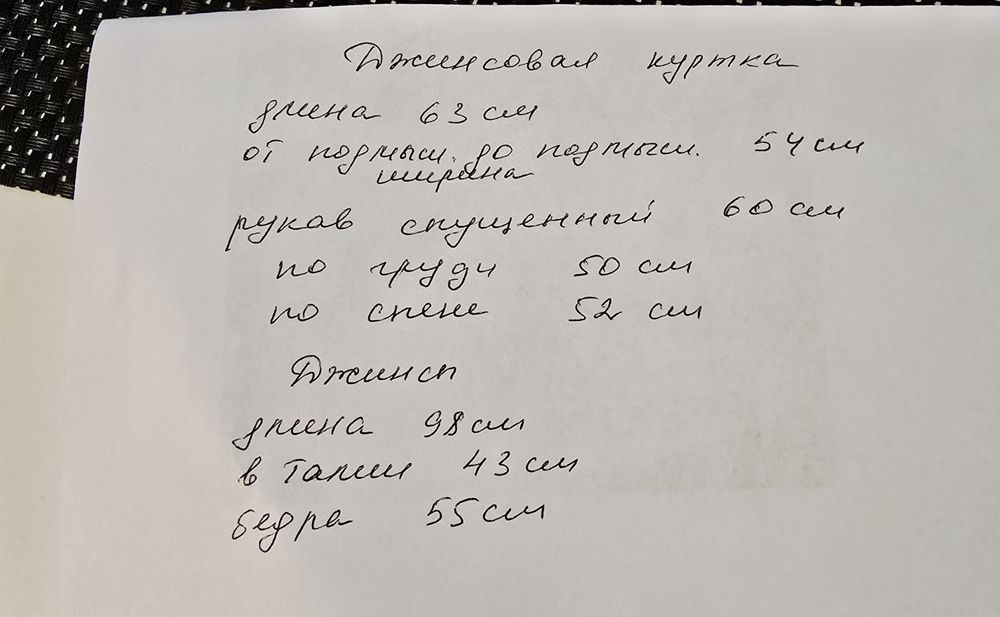 Джинсовая куртка
длина 63 см
от подмыш. до подмыш. 54 см
ширина
рукав спущенный 60 см
по груди 50 см
по спене 52 см
Джинсы
длина 98 см
в талии 43 см
бедра 55 см